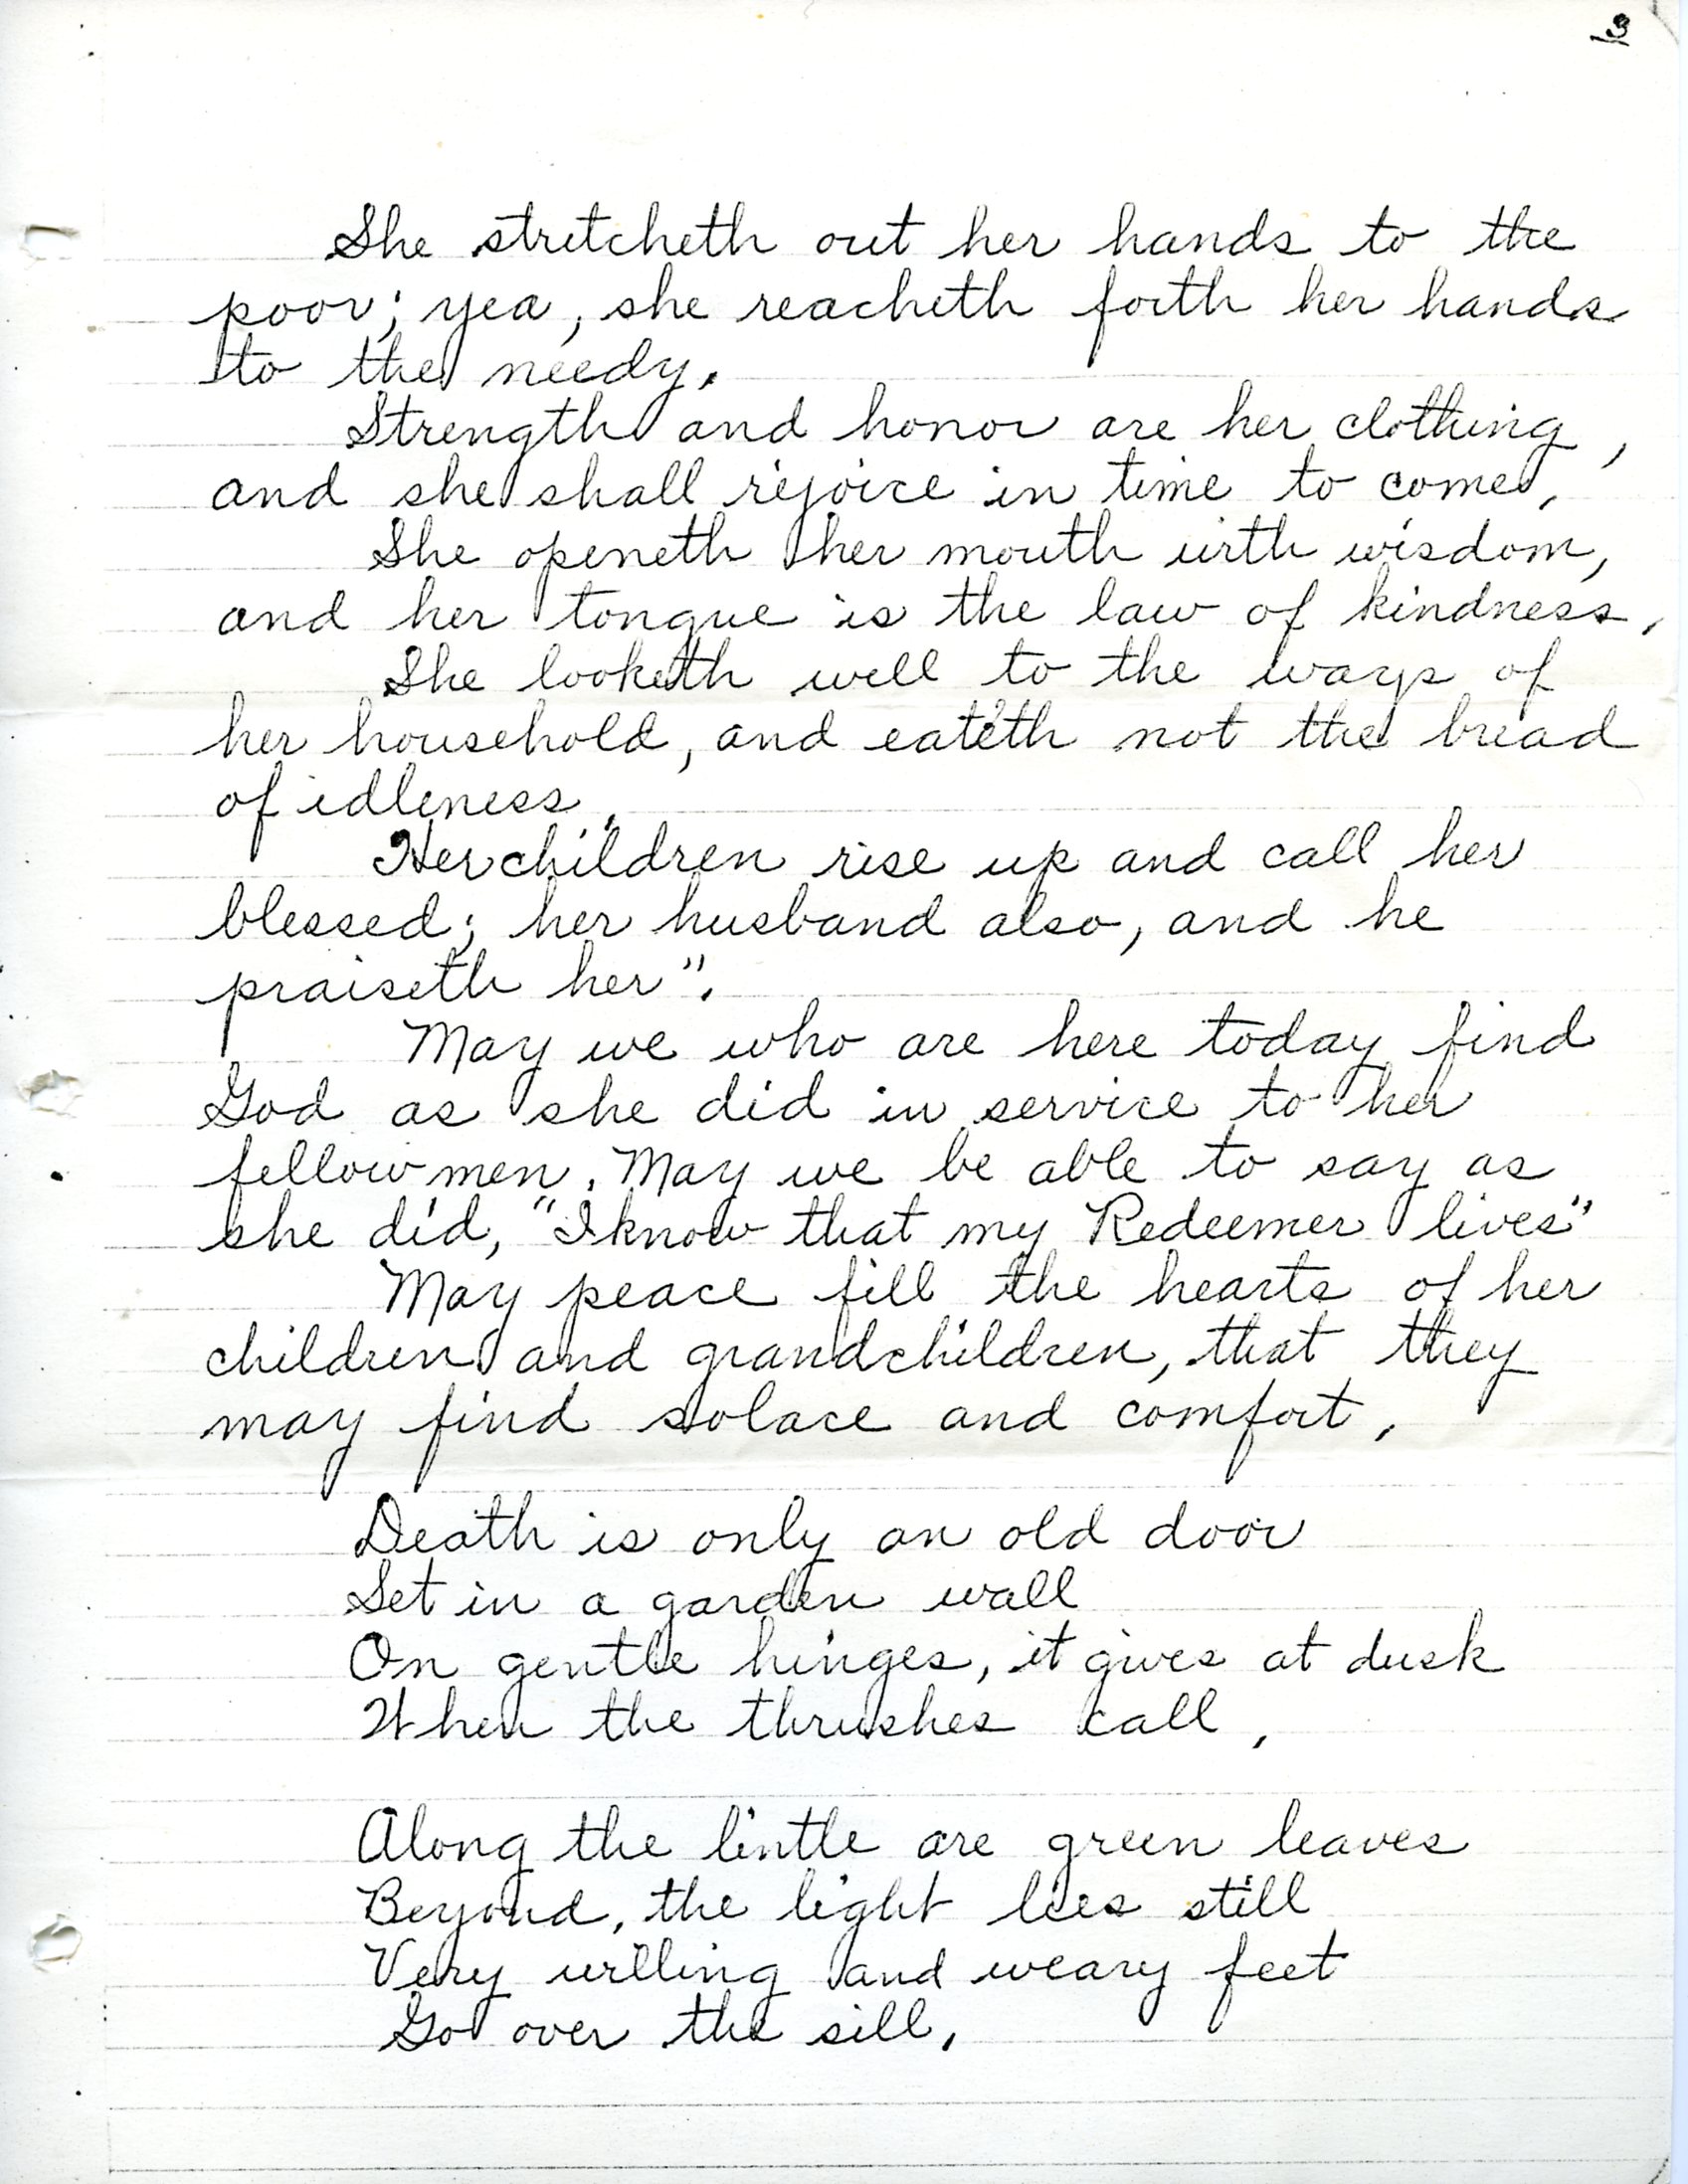 3
She stretcheth out her hands to the
poor; yea, she reacheth forth her hands
to the needy.
Strength and honor are her clothing,
and she shall rejoice in time to come.
She openeth her mouth with wisdom,
and her tongue is the law of kindness.
She looketh well to the ways of
her household, and eateth not the bread
of idleness.
Her children rise up and call her
blessed; her husband also, and he
praiseth her".
May we who are here today find
God as she did in service to her
fellowmen. May we be able to say as
she did, "I know that my Redeemer lives"
May peace fill the hearts of her
children and grandchildren, that they
may find solace and comfort.
Death is only an old door
Set in a garden wall
On gentle hinges, it gives at dusk
When the thrushes call.
Along the lintle are green leaves
Beyond, the light lies still
Very willing and weary feet
Go over the sill.